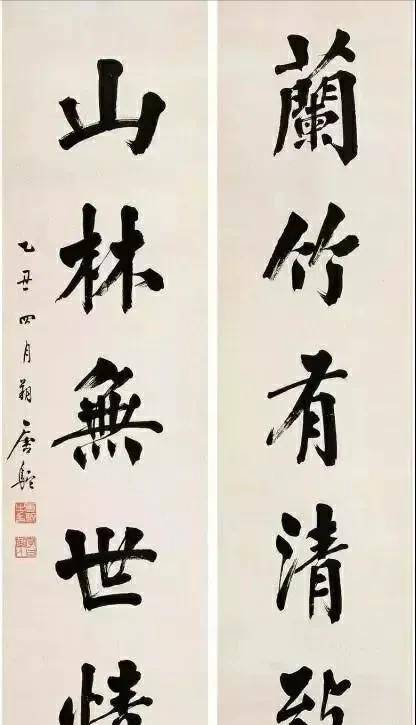 蘭竹有清
山林無世情
乙丑四月朔唐駝